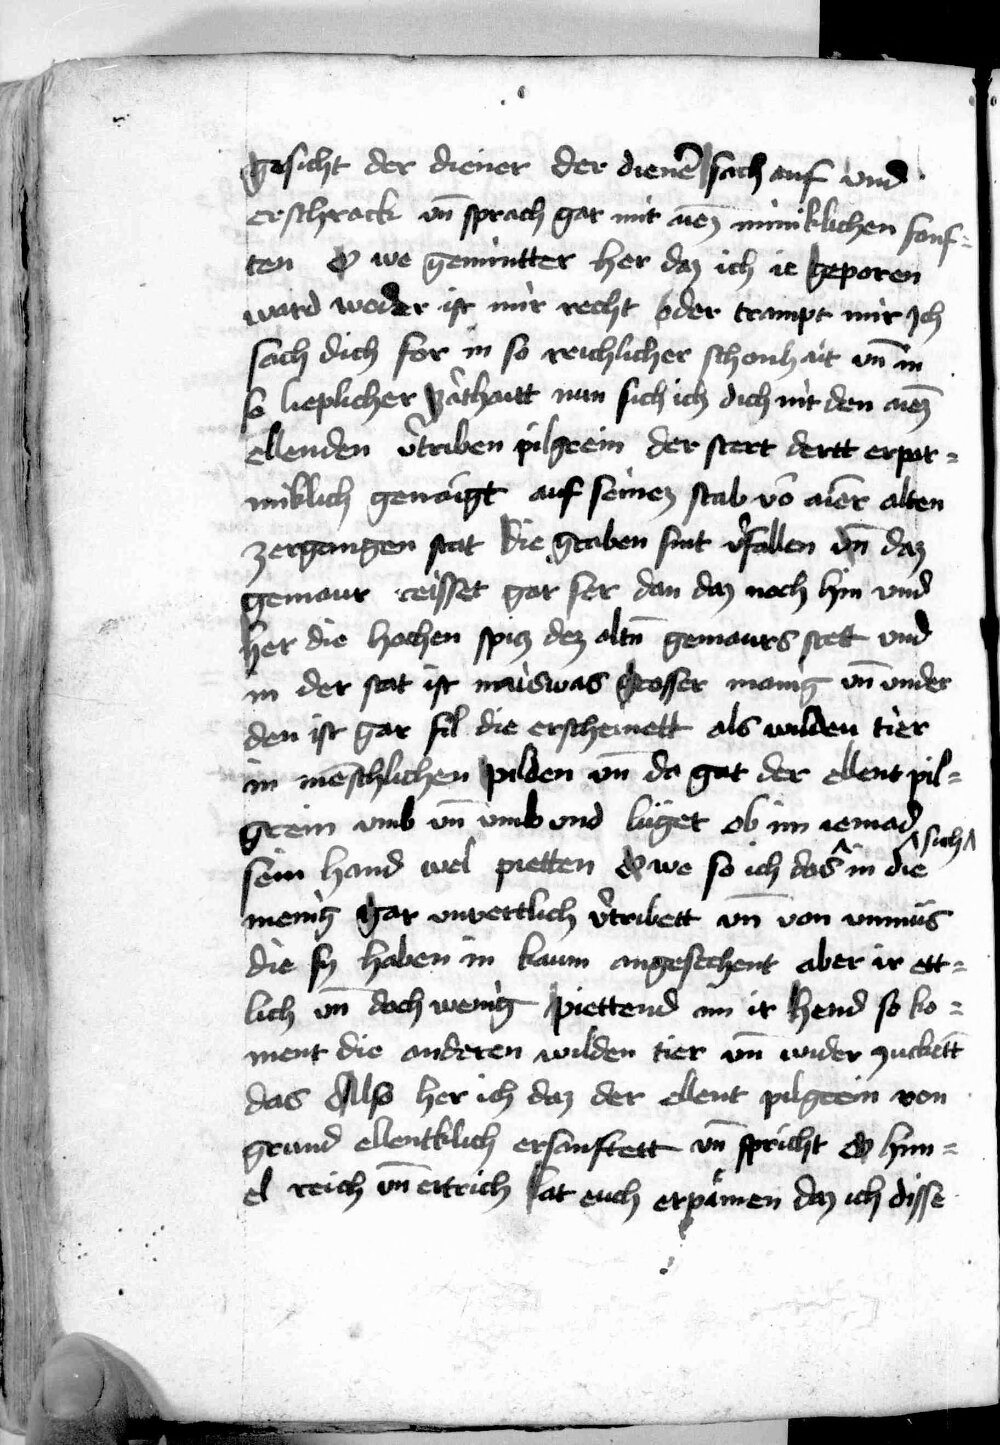 gesicht der diener der dienē sach auf vnd
erschrack vn̄ sprach gar mit aiēz miniklichen senf=
ten O we gemintter her daz ich ie geporen
ward weder ist mir recht oder trampt mir Ich
sach dich for in so reichlicher schonhait vn̄ in
so lieplicher zarthait nun sich ich dich mit den aiēz
ellenden v̄triben pilgrein der stett dertt erper=
miklich genaigt auf seinez stab vō aiēr alten
zergangen stat die graben sint v̄fallen vn̄ daz
gemaur reisset gar ser dan daz noch hin vnd
her die hochen spicz dez altn̄ gemaurs stett vnd
in der stat ist maiswas grosser manig vn̄ vnder
den ist gar fil die erscheinett als wilden tier
in mēschlichen pilden vn̄ da gat der ellent pil=
grein vmb vn̄ vmb vnd luget ob im iemad
sein hand wel pietten O we so ich das ^sich^ in die
menig gar vnvertlich v̄tribett vn̄ von vnmüs
die sy haben in kaum angesechent aber ir ett=
lich vn̄ doch wenig piettend im ir hend so ko=
ment die anderen wilden tier vn̄ wider zuckett
das Also her ich daz der ellent pilgrein von
grund ellentklich ersünftett vn̄ spricht O him=
el reich vn̄ ertrich lat euch erpamen daz ich disse